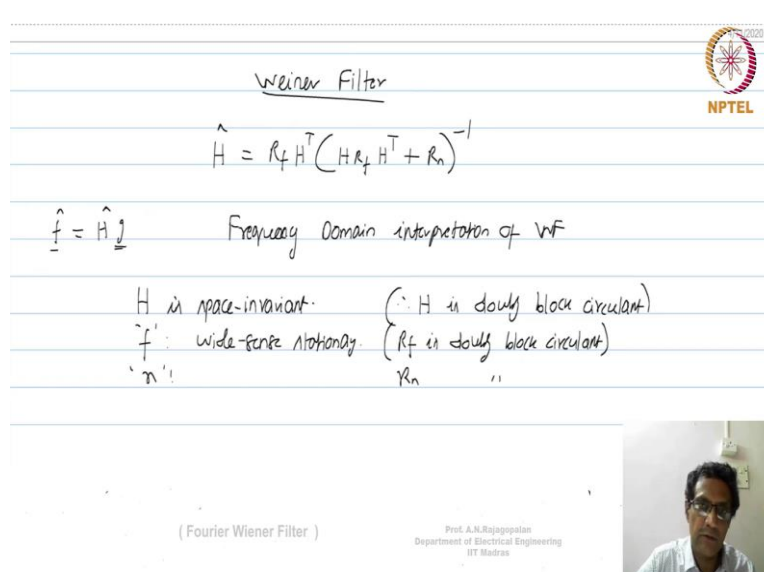 /2020
NPTEL
Weiner Filter
Ĥ = Rf Hᵀ (H Rf Hᵀ + Rn)⁻¹
f̂ = Ĥ g Frequency Domain interpretation of WF
H is space-invariant. (∴ H is doubly block circulant)
'f': wide-sense stationary. (Rf is doubly block circulant)
'n': Rn "
( Fourier Wiener Filter )
Prof. A.N.Rajagopalan
Department of Electrical Engineering
IIT Madras